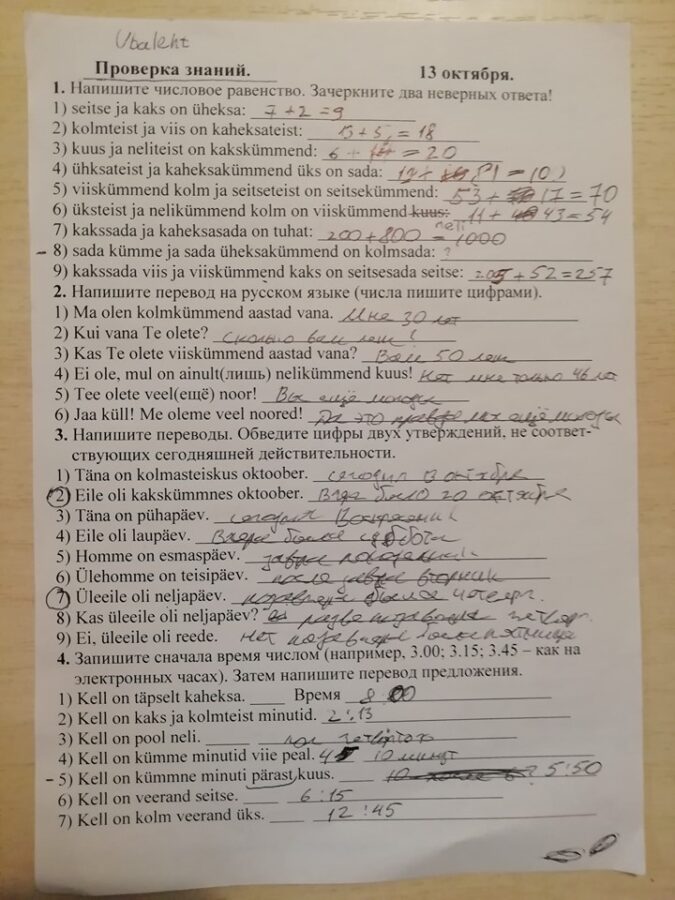 Vbaleht
Проверка знаний. 13 октября.
1. Напишите числовое равенство. Зачеркните два неверных ответа!
1) seitse ja kaks on üheksa: 7+2=9
2) kolmteist ja viis on kaheksateist: 13+5,=18
3) kuus ja neliteist on kakskümmend: 6+14=20
4) ühksateist ja kaheksakümmend üks on sada: 81=10
5) viiskümmend kolm ja seitseteist on seitsekümmend: 53+17=70
6) üksteist ja nelikümmend kolm on viiskümmend kuus: 11+43=54
7) kakssada ja kaheksasada on tuhat: 200+800=1000
- 8) sada kümme ja sada üheksakümmend on kolmsada: ?
9) kakssada viis ja viiskümmend kaks on seitsesada seitse: 205+52=257
2. Напишите перевод на русском языке (числа пишите цифрами).
1) Ma olen kolmkümmend aastad vana. Мне 30 лет
2) Kui vana Te olete? Сколько вам лет?
3) Kas Te olete viiskümmend aastad vana? Вам 50 лет
4) Ei ole, mul on ainult(лишь) nelikümmend kuus! Нет мне только 46 лет
5) Tee olete veel(ещё) noor! Вы ещё молоды
6) Jaa küll! Me oleme veel noored! Да это правда мы ещё молоды
3. Напишите переводы. Обведите цифры двух утверждений, не соответ-
ствующих сегодняшней действительности.
1) Täna on kolmasteiskus oktoober. сегодня 13 октября
2) Eile oli kakskümmnes oktoober. Вчера было 20 октября
3) Täna on pühapäev. сегодня Воскресение
4) Eile oli laupäev. Вчера была суббота
5) Homme on esmaspäev. завтра понедельник
6) Ülehomme on teisipäev. после завтра вторник
7) Üleeile oli neljapäev. позавчера был четверг.
8) Kas üleeile oli neljapäev? разве позавчера четверг.
9) Ei, üleeile oli reede. Нет позавчера была пятница
4. Запишите сначала время числом (например, 3.00; 3.15; 3.45 – как на
электронных часах). Затем напишите перевод предложения.
1) Kell on täpselt kaheksa. Время 8:00
2) Kell on kaks ja kolmteist minutid. 2:13
3) Kell on pool neli. пол четвертого
4) Kell on kümme minutid viie peal. 10 минут
- 5) Kell on kümmne minuti pärast kuus. ? 5:50
6) Kell on veerand seitse. 6:15
7) Kell on kolm veerand üks. 12:45